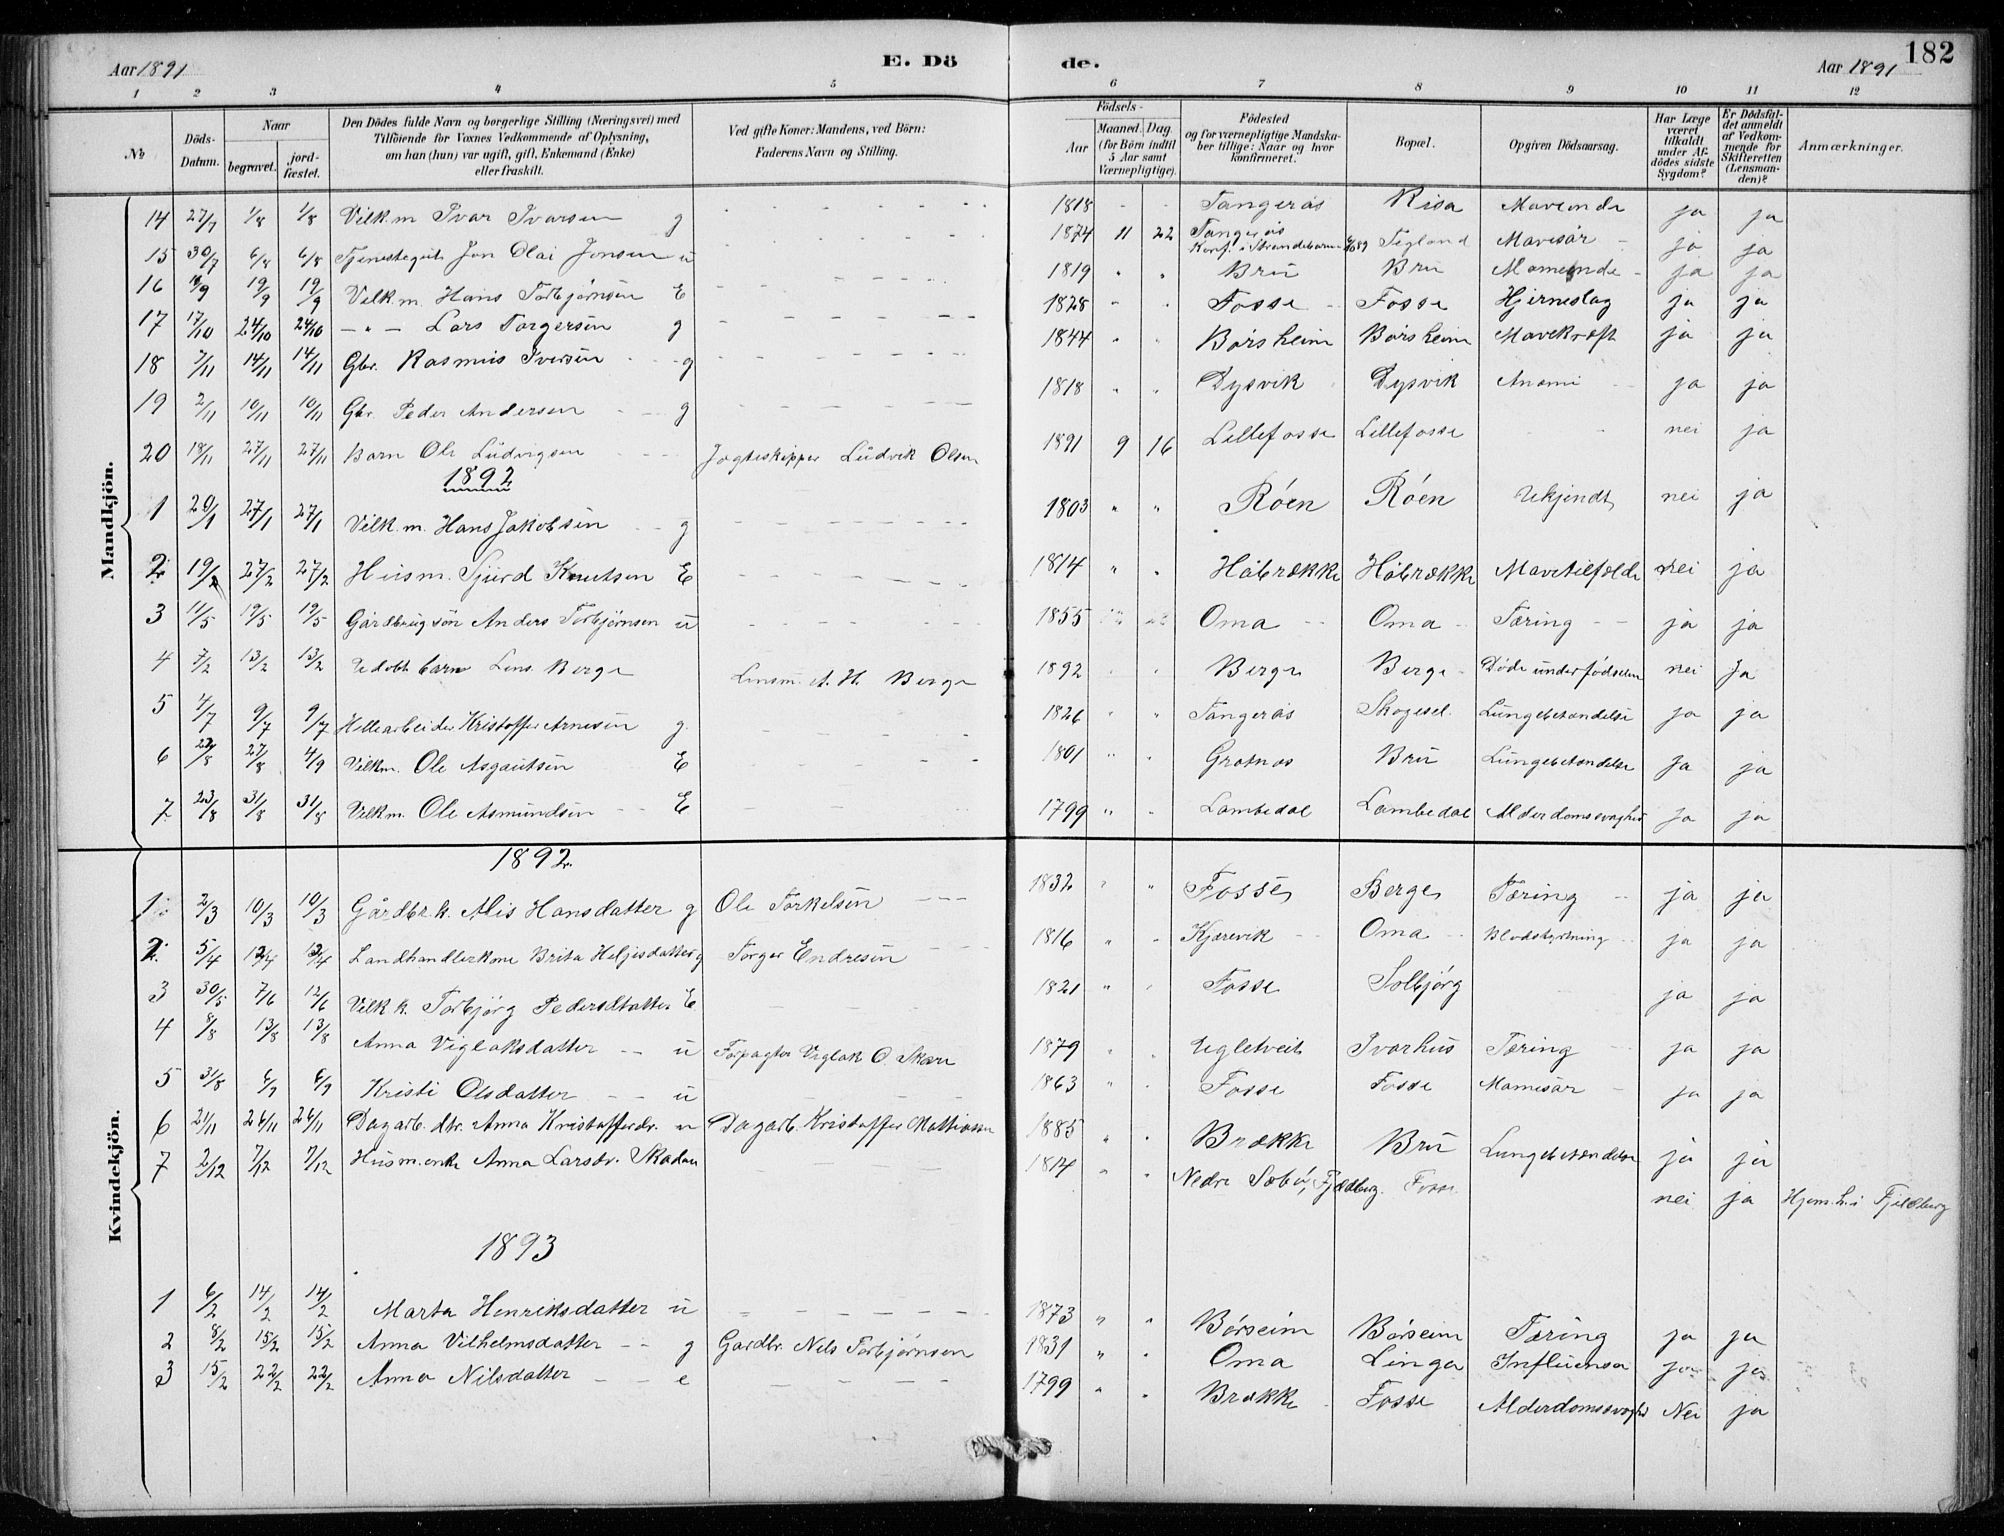 Aar 1891 E. Dö de. Aar 1891 182
1 2 3 4 5 6 7 8 9 10 11 12
No
Döds-Datum.
Naar
begravet.
jord-fæstet.
Den Dödes fulde Navn og borgerlige Stilling (Næringsvei) med
Tilföiende for Voxnes Vedkommende af Oplysning,
om han (hun) var ugift, gift, Enkemand (Enke)
eller fraskilt.
Ved gifte Koner: Mandens, ved Börn:
Faderens Navn og Stilling.
Födsels-
Aar
Maaned. Dag.
(for Börn indtil
5 Aar samt
Værnepligtige).
Födested
og for værnepligtige Mandska-
ber tillige: Naar og hvor
konfirmeret.
Bopæl.
Opgiven Dödsaarsag.
Har Læge
været
tilkaldt
under Af-
dödes sidste
Sygdom?
Er Dödsfal-
det anmeldt
af Vedkom-
mende for
Skifteretten
(Lensman-
den)?
Anmærkninger.
Mandkjön.
14 27/7 1/8 1/8 Vilk.m Ivar Ivarsen g 1818 Tangerås Risa Maveonde ja ja
15 30/7 6/8 6/8 Tjenestegut Jon Olai Jonsen u 1874 11 22 Tangerås Konf. i Strandebarm Tegland Mavesår ja ja
16 19/9 19/9 Vilk.m. Hans Torbjørnsen E 1819 Brü Brü ja ja
17 17/10 24/10 24/10 — " — Lars Torgersen g 1828 Fosse Fosse Hjerneslag ja ja
18 7/11 14/11 14/11 Gbr. Rasmus Iversen g 1844 Börsheim Börsheim Mavekræft ja ja
19 2/11 10/11 10/11 Gbr. Peder Andersen g 1818 Dysvik Dysvik Anæmi ja ja
20 18/11 27/11 27/11 Barn Ole Lüdvigsen Jagteskipper Lüdvik Olsen 1891 9 16 Lillefosse Lillefosse nei ja
1892
1 20/1 27/1 27/1 Vilk.m. Hans Jakobsen g 1803 Röen Röen Ukjendt nei ja
2 19/2 27/2 27/2 Husm. Sjurd Knutsen E 1814 Håbrække Håbrække Mavetilfælde nei ja
3 11/5 19/5 19/5 Gårdbrug. søn Anders Torbjørnsen u 1855 Oma Oma Tæring ja ja
4 7/2 13/2 13/2 Udøbt barn Lens. Berge Lensm. A. H. Berge 1892 Berge Berge Døde under fødselen nei Ja
5 4/7 9/7 9/7 Kristoffer Arnesen g. 1826 Tangerås Skogesel. Lungebetændelse ja ja
6 22/8 27/8 4/9 Vilkm. Ole Asgautsen E 1801 Grotnæs Brü Lungebetændelse Ja ja
7 23/8 31/8 31/8 Vilkm. Ole Asmundsen E 1799 Lambedal Lambedal Alderdomssvaghed Ja ja
Kvindekjön.
1892
1 2/3 10/3 10/3 Gårdbr.k. Alis Hansdatter g Ole Torkelsen 1832 Fosse Berge Tæring ja ja
2. 5/4 13/4 13/4 Landhandlerkone Brita Helgesdatter g Torger Endresen 1816 Kjærevik Oma Blodstyrtning ja ja
3 30/5 7/6 12/6 Vilk k. Torbjørg Pedersdatter E 1821 Fosse Solbjörg ja ja
4 8/8 13/8 13/8 Anna Viglaksdatter u Forpagter Viglak O. Skare 1879 Ugletveit Ivarhus Tæring ja ja
5 31/8 6/9 6/9 Kristi Olsdatter u 1863 Fosse Fosse Mavesår ja ja
6 21/11 26/11 26/11 Dagarb. dtr. Anna Kristofferdr. u Dagarb. Kristoffer Mathiassen 1885 Brække Brü Lungebetændelse ja ja
7 2/12 7/12 7/12 Husm.enke Anna Larsdr. Skadau 1814 Nedre Sæbö, Fjeldberg. Fosse nei ja Hjem.h. i Fjeldberg
1893
1 6/2 14/2 14/2 Marta Henriksdatter u 1873 Börseim Börseim Tæring ja ja
2 8/2 15/2 15/2 Anna Vilhelmsdatter g Gardbr. Nils Torbjørnsen 1831 Oma Linga Influensa ja ja
3 15/2 22/2 22/2 Anna Nilsdatter e 1799 Brække Fosse Alderdomssvaghed Nei ja